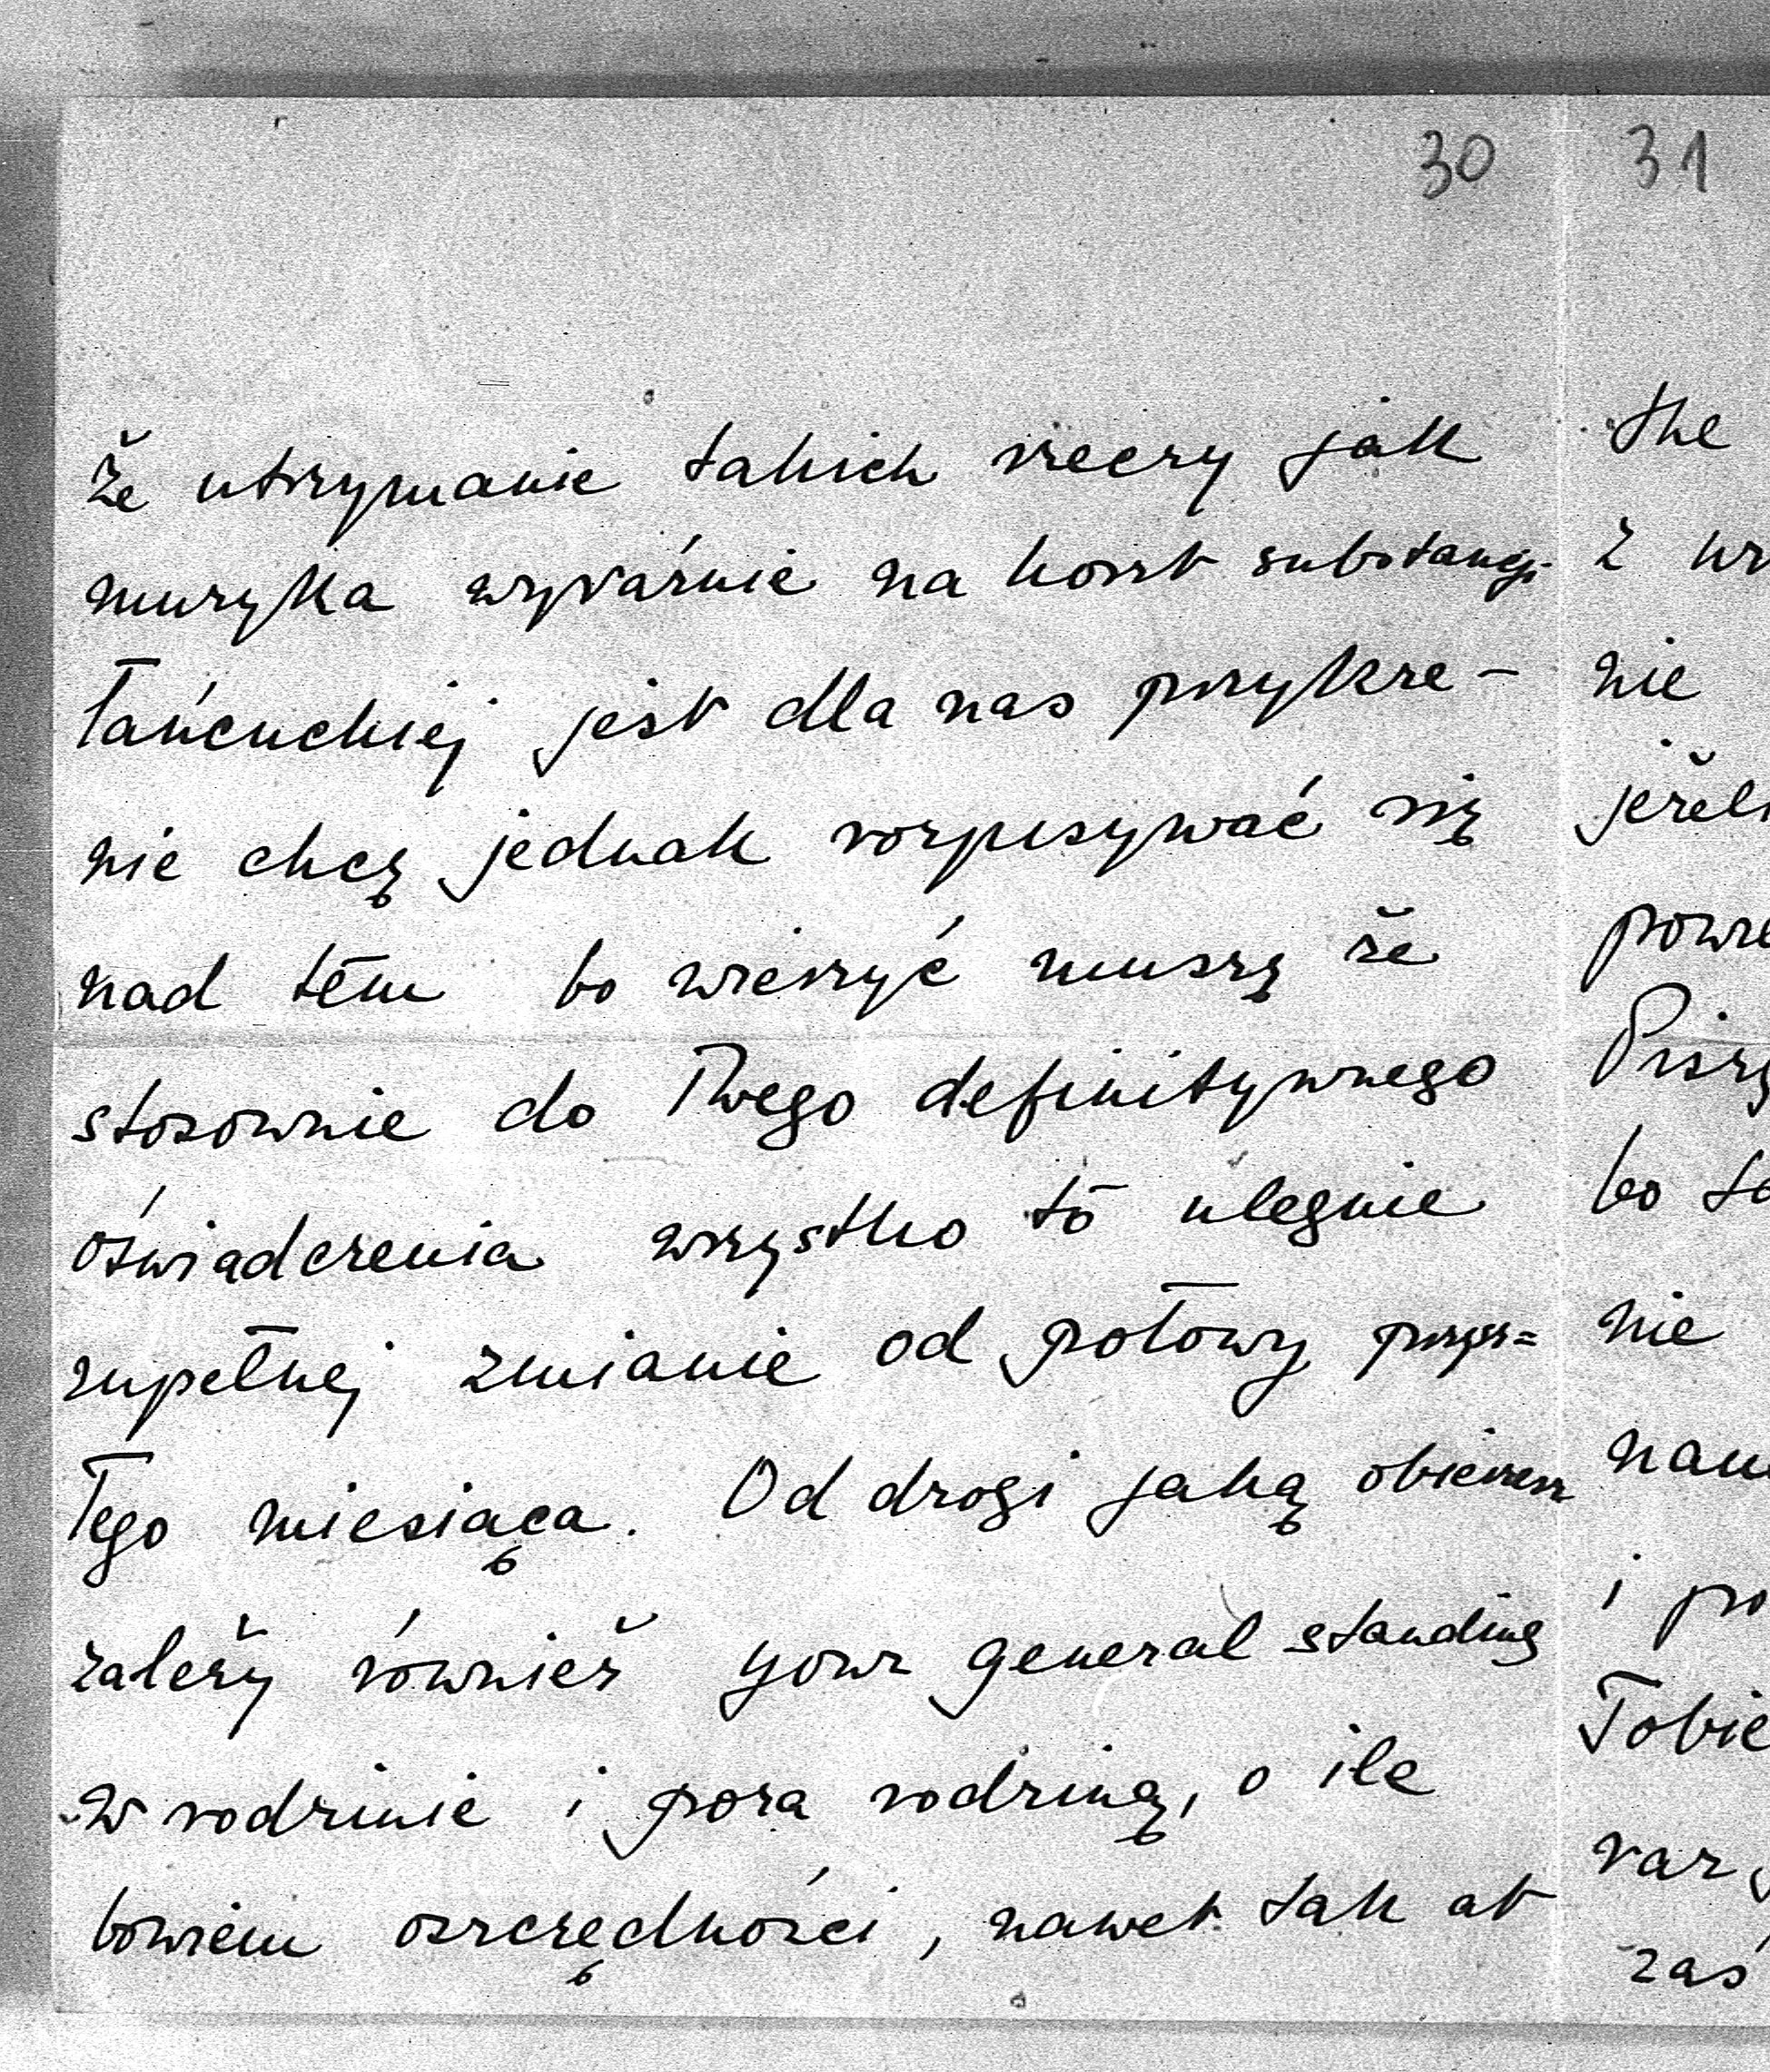 30
że utrzymanie takich rzeczy jak
muzyka wyraźnie na koszt substancji
łańcuckiej jest dla nas przykre –
nie chcę jednak rozpisywać się
nad tēm bo wierzyć muszę że
stosownie do Twego definitywnego
oświadczenia wszystko tō ulegnie
zupełnej zmianie od połowy przysz=
łego miesiąca. Od drogi jaką obierzesz
zależy również your general standing
w rodzinie i poza rodziną, o ile
bowiem oszczędności, nawet tak at
31
the
z
nie
jeżeli
Piszę
nie
i
Tobie
raz
zaś